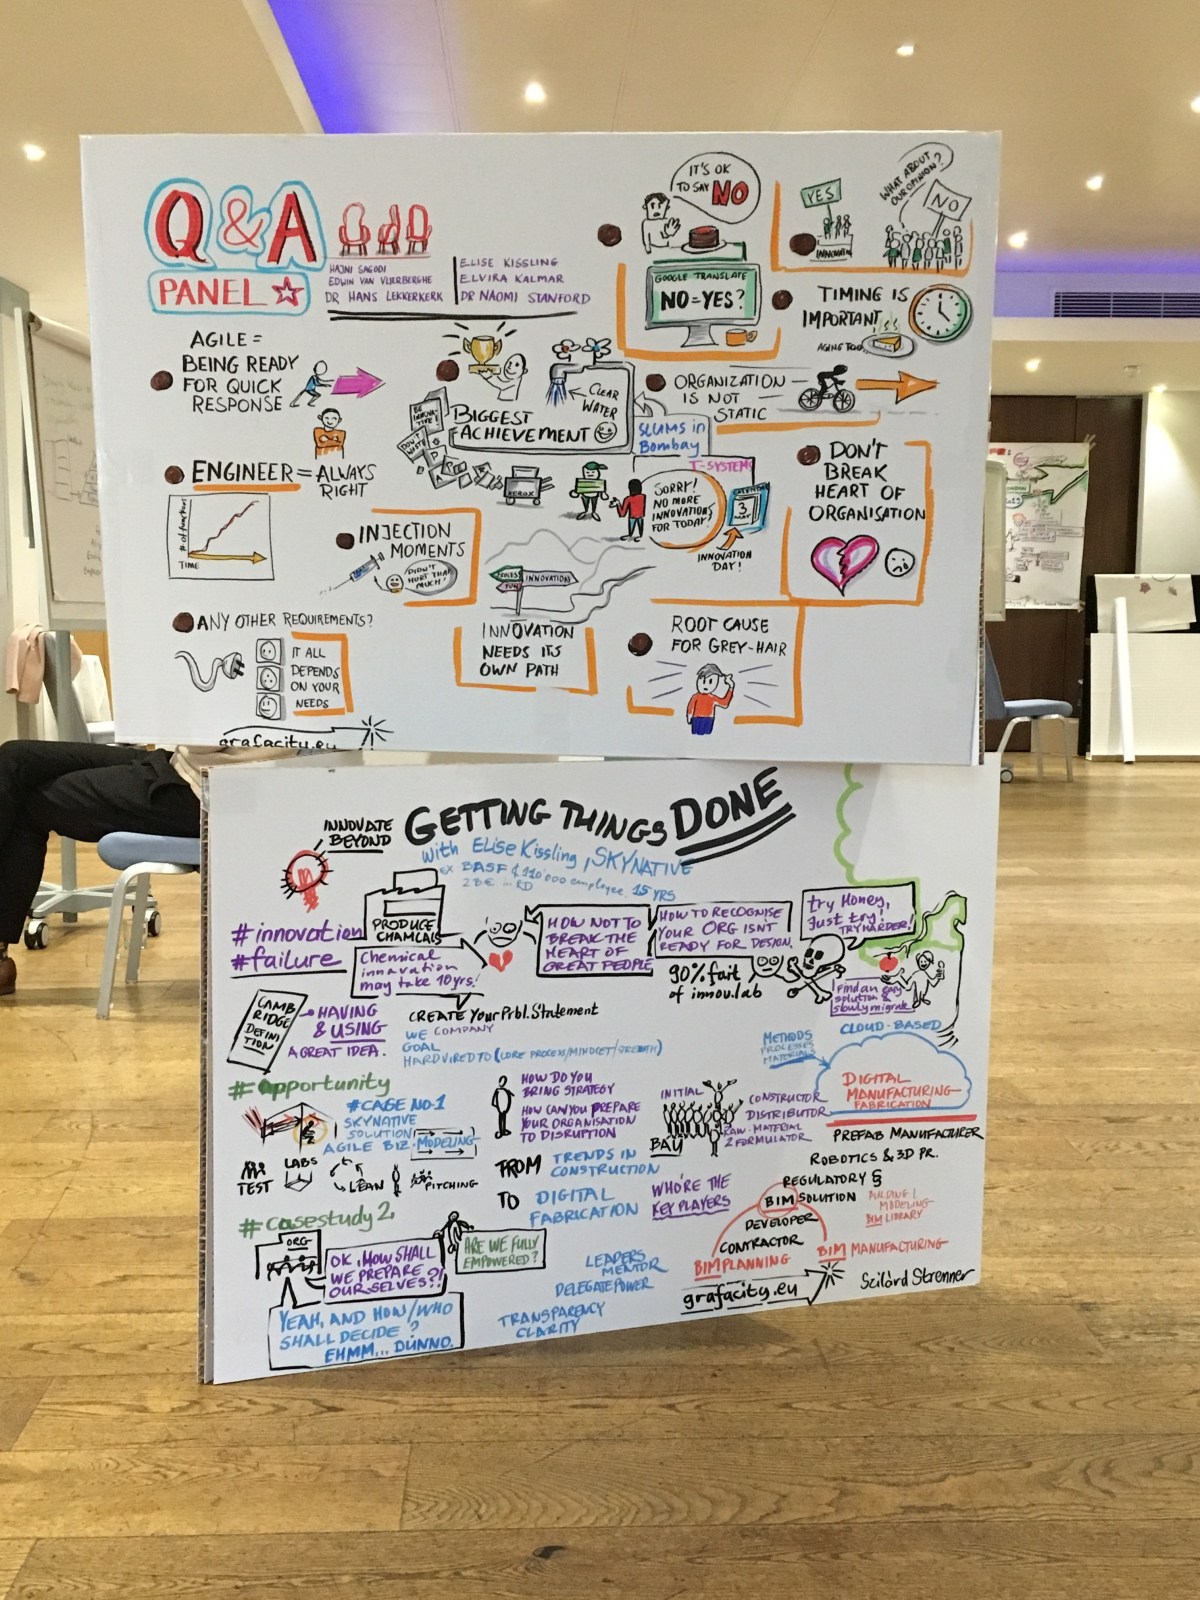 Q&A
PANEL
HAJNI SAGODI
EDWIN VAN VLIERBERGHE
DR HANS LEKKERKERK
ELISE KISSLING
ELVIRA KALMAR
DR NAOMI STANFORD
IT'S OK
TO SAY NO
GOOGLE TRANSLATE
NO=YES?
YES
INNOVATION
WHAT ABOUT
OUR OPINION?
NO
TIMING IS
IMPORTANT
AGING TOO
AGILE =
BEING READY
FOR QUICK
RESPONSE
BIGGEST
ACHIEVEMENT
CLEAR
WATER
SLUMS in
Bombay
ORGANIZATION
IS NOT
STATIC
ENGINEER = ALWAYS
RIGHT
TIME
XEROX
T-SYSTEMS
SORRY!
NO MORE
INNOVATIONS
FOR TODAY!
CALENDAR
3
INNOVATION
DAY!
DON'T
BREAK
HEART OF
ORGANISATION
INJECTION
MOMENTS
DIDN'T
HURT THAT
MUCH!
INNOVATIONS
INNOVATION
NEEDS ITS
OWN PATH
ANY OTHER REQUIREMENTS?
IT ALL
DEPENDS
ON YOUR
NEEDS
ROOT CAUSE
FOR GREY-HAIR
grafacity.eu
GETTING THINGS DONE
INNOVATE
BEYOND
with Elise Kissling, SKYNATIVE
ex BASF 110'000 employee 15 YRS
2B€ in RD
#innovation
#failure
PRODUCE
CHAMCALS
Chemical
innavation
may take 10yrs.
HOW NOT TO
BREAK THE
HEART OF
GREAT PEOPLE
HOW TO RECOGNISE
YOUR ORG ISN'T
READY FOR DESIGN.
90% fait
of innov.lab
try Honey,
Just try!
TRY HARDER!
Find an easy
solution &
slowly migrate
CLOUD-BASED
CAMB
RIDGE
DEFINI
TION
HAVING
& USING
A GREAT IDEA.
CREATE Your Prbl. Statement
WE COMPANY
GOAL
HARDVIRED TO (CORE PROCESS/MINDCET/GROWTH)
METHODS
PROCESSES
MATERIALS
DIGITAL
MANUFACTURING
FABRICATION
#opportunity
#CASE NO.1
SKYNATIVE
SOLUTION
AGILE BIZ. MODELING
TEST
LABS
LEAN
PITCHING
HOW DO YOU
BRING STRATEGY
HOW CAN YOU PREPARE
YOUR ORGANISATION
TO DISRUPTION
FROM TRENDS IN
CONSTRUCTION
TO DIGITAL
FABRICATION
INITIAL
BAU
CONSTRUCTOR
DISTRIBUTOR
RAW-MATERIAL
FORMULATOR
WHO'RE THE
KEY PLAYERS
PREFAB MANUFACTURER
ROBOTICS & 3D PR.
REGULATORY §
BIM SOLUTION
BUILDING
MODELING
BIM LIBRARY
DEVELOPER
CONTRACTOR
BIM PLANNING
BIM MANUFACTURING
#casestudy 2
ORG
OK, HOW SHALL
WE PREPARE
OURSELVES?!
ARE WE FULLY
EMPOWERED?
YEAH, AND HOW/WHO
SHALL DECIDE?
EHMM... DUNNO.
LEADERS
MENTOR
DELEGATE POWER
TRANSPARENCY
CLARITY
grafacity.eu
Szilárd Strenner